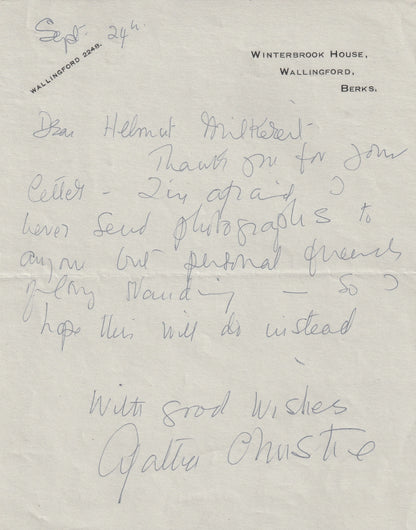 Sept. 24th
WALLINGFORD 2248.
WINTERBROOK HOUSE,
WALLINGFORD,
BERKS.
Dear Helmut
Thank you for your
letter – I'm afraid I
never send photographs to
anyone but personal friends
of long standing – So I
hope this will do instead
With good wishes
Agatha Christie